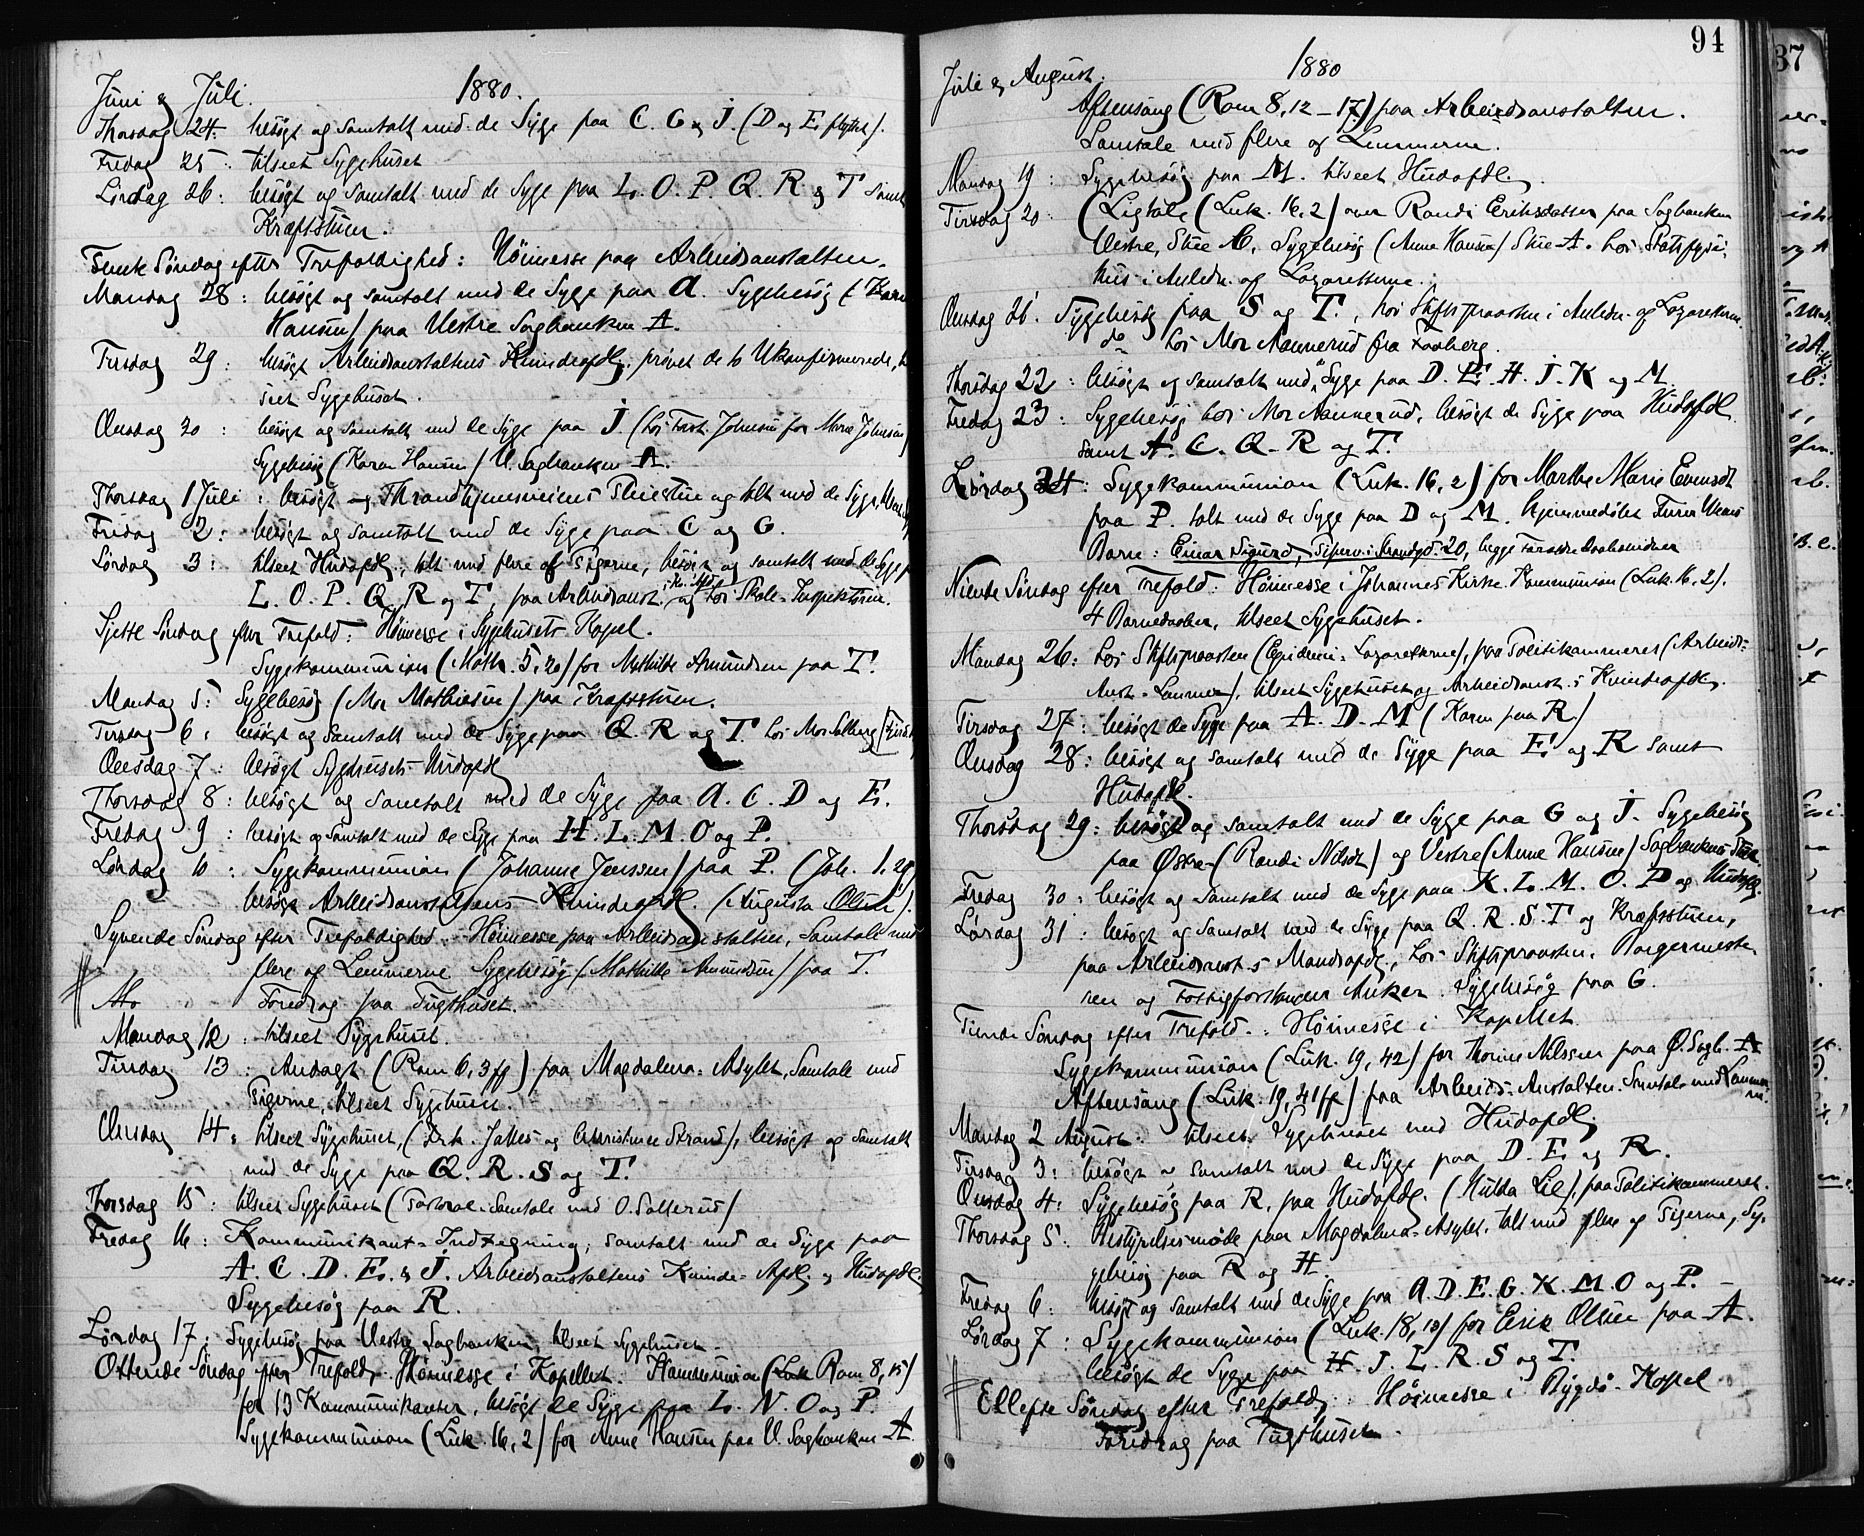 Juni & Juli. 1880.
Thorsdag 24: besøgt og samtalt med de Syge paa C. G & J. (D og E flyttet).
Fredag 25: tilseet Sygehuset
Lørdag 26: besøgt og samtalt med de Syge paa L. O. P. Q. R & T samt
Kræftstuen.
Femte Søndag efter Trefoldighed: Høimesse paa Arbeidsanstalten.
Mandag 28: besøgt og samtalt med de Syge paa A. Sygebesøg (Karen
Hansen) paa Vestre Sagbanken A.
Tirsdag 29: besøgt Arbeidsanstaltens Kvindeafdl., prøvet de to Ukonfirmerede,
seet Sygehuset.
Onsdag 30: besøgt og samtalt med de Syge paa J (hos Forst. Johnsen for Marie Johnsen)
Sygebesøg (Karen Hansen) V. Sagbanken A.
Thorsdag 1 Juli: besøgt og Throndhjemsveiens Pleiestue og talt med de Syge,
Fredag 2: besøgt og samtalt med de Syge paa C og G.
Lørdag 3: tilseet Hudafdl., talt med flere af Pigerne, besøgt og samtalt med de Syge p
L. O. P. Q. R og T, paa Arbeidsanst. og hos Skole-Inspektøren.
Sjette Søndag efter Trefold: Høimesse i Sygehusets Kapel.
Sygekommunion (Math. 5, 20) for Mathilde Amundsen paa T.
Mandag 5: Sygebesøg (Mor Mathiesen) paa Kræftstuen.
Tirsdag 6: besøgt og samtalt med de Syge paa Q. R og T. hos Mor Solberg
Onsdag 7: besøgt Sygehusets Hudafdl
Thorsdag 8: besøgt og samtalt med de Syge paa A. C. D og E.
Fredag 9: besøgt og samtalt med de Syge paa H. L. M. O og P.
Lørdag 10: Sygekommunion (Johanne Jenssen) paa P. (Joh. 1. 29)
besøgt Arbeidsanstaltens Kvindeafdl. (Augusta Olsen).
Syvende Søndag efter Trefoldighed. Høimesse paa Arbeidsanstalten, Samtale med
flere af Lemmerne Sygebesøg (Mathilde Amundsen) paa T.
Foredrag paa Tugthuset.
Mandag 12: tilseet Sygehuset.
Tirsdag 13: Andagt (Rom 6, 3 ff) paa Magdalena-Asylet, Samtale med
Pigerne, tilseet Sygehuset.
Onsdag 14: tilseet Sygehuset, ( og Christine Strand), besøgt og samtalt
med de Syge paa Q. R. S og T.
Thorsdag 15: tilseet Sygehuset (Pastoral-Samtale med O. Sollerud)
Fredag 16: Kommunikant-Indtegning, samtalt med de Syge paa
A. C. D. E. & J. Arbeidsanstaltens Kvinde-Afdl. og Hudafdl.
Sygebesøg paa R.
Lørdag 17: Sygebesøg paa Vestre Sagbanken, tilseet Sygehuset.
Ottende Søndag efter Trefold. Høimesse i Kapellet. Kommunion (Rom 8, 15)
for 13 Kommunikanter, besøgt de Syge paa L. N. O og P.
Sygekommunion (Luk. 16, 2) for Anne Hansen paa V. Sagbanken A.
94
Juli & August. 1880
Aftensang (Rom 8, 12-17) paa Arbeidsanstalten.
Samtale med flere af Lemmerne.
Mandag 19: Sygebesøg paa M. tilseet Hudafdl.
Tirsdag 20: (Ligtale (Luk. 16, 2) over Randi Eriksdatter paa Sagbanken
Vestre, Stue C, Sygebesøg (Anne Hansen) Stue A. hos Statsfysi-
kus i Anledn. af Lazaretterne.
Onsdag 21. Sygebesøg paa S og T. hos Stiftsprovsten i Anledn. af Lazaretterne.
do hos Mor Nannerud fra Faaberg.
Thorsdag 22: besøgt og samtalt med Syge paa D. E. H. J. K og M.
Fredag 23: Sygebesøg hos Mor Nannerud, besøgt de Syge paa Hudafdl.
samt A. C. Q. R og T.
Lørdag 24: Sygekommunion (Luk. 16, 2) for Marthe Marie Evensdt
paa P. talt med de Syge paa D og M. hjemmedøbt
Barn: Einar Sigurd,
Niende Søndag efter Trefold: Høimesse i Johannes Kirke Kommunion (Luk. 16, 2).
4 Barnedaaber, tilseet Sygehuset.
Mandag 26: hos Stiftsprovsten (Epidemi-Lazaretterne), paa Politikammeret (Arbeids-
Anst-Lemmer), tilseet Sygehuset og Arbeidsanst.s Kvindeafdl.
Tirsdag 27: besøgt de Syge paa A. D. M (Karen paa R.)
Onsdag 28: besøgt og samtalt med de Syge paa E. og R samt
Hudafdl.
Thorsdag 29: besøgt og samtalt med de Syge paa G og J. Sygebesøg
paa Østre (Randi Nilsdt) og Vestre (Anne Hansen) Sagbankens Stue
Fredag 30: besøgt og samtalt med de Syge paa K. L. M. O. P og Hudafdl.
Lørdag 31: besøgt og samtalt med de Syge paa Q. R. S. T og Kræftstuen,
paa Arbeidsanst.s Mandsafdl., hos Stiftsprovsten, Borgermeste-
ren og Fattigforstander Anker. Sygebesøg paa G.
Tiende Søndag efter Trefold.: Høimesse i Kapellet
Sygekommunion (Luk. 19, 42) for Thorine Nilssen paa Ø. Sagb. A
Aftensang (Luk. 19, 41 ff) paa Arbeids-Anstalten. Samtale med Lemmer-
ne.
Mandag 2 August: tilseet Sygehuset med Hudafdl.
Tirsdag 3: besøgt og samtalt med de Syge paa D. E. og R.
Onsdag 4: Sygebesøg paa R, paa Hudafdl. (Hulda Lie), paa Politikammeret.
Thorsdag 5: Bestyrelsesmøde paa Magdalena-Asylet, talt med flere af Pigerne, Sy-
gebesøg paa R og H.
Fredag 6: besøgt og samtalt med de Syge paa A. D. E. G. K. M. O og P.
Lørdag 7: Sygekommunion (Luk. 18, 13) for Erik Olsen paa A.
besøgt de Syge paa H. J. L. R. S og T.
Ellefte Søndag efter Trefold.: Høimesse i Bygdø-Kapel
Foredrag paa Tugthuset.
37